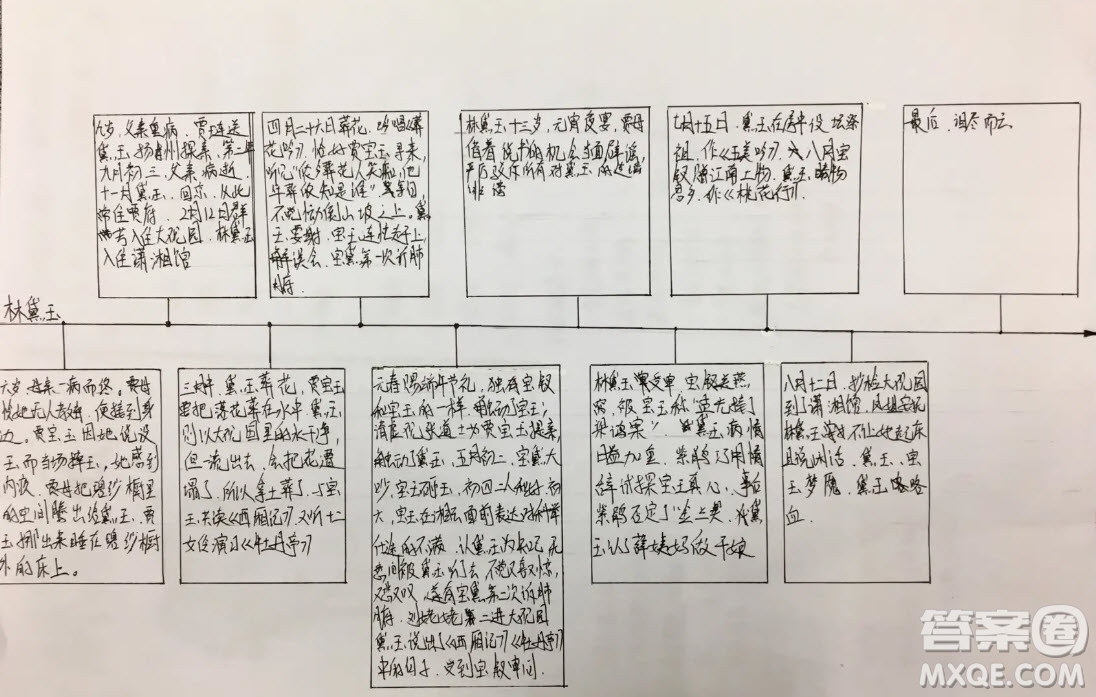 九岁,父亲重病,贾琏送
黛玉扬州探亲,第二年
九月初三,父亲病逝
十一月黛玉回京,从此
常住贾府,2月12日群
芳入住大观园,林黛玉
入住潇湘馆
四月二十六日葬花,吟唱《葬
花吟》恰好贾宝玉寻来,
听见"侬今葬花人笑痴,他
年葬侬知是谁"等句
不觉恸倒山坡之上。黛
玉要躲,宝玉连忙赶上,
解误会,宝黛第一次诉肺
腑
林黛玉十三岁,元宵夜宴,贾母
借着说书的机会当面辟谣,
七月十五日,黛玉在房中设坛祭
祖,作《五美吟》,八月宝
钗赠江南土物,黛玉睹物
思乡,作《桃花行》.
最后,泪尽而亡
林黛玉
六岁母亲一病而终。贾母
便接到身
边。贾宝玉因她说没
玉而当场摔玉,她感到
内疚,贾母把碧纱橱里
的空间腾出给黛玉,贾
玉挪出来睡在碧纱橱
外的床上。
黛玉葬花,贾宝玉
要把落花葬在水中,黛玉
则以大观园里的水干净,
但一流出去,会把花遭
塌了,所以拿土葬了,与宝
玉共读《西厢记》又听十二
女伶演习《牡丹亭》
元春赐端午节礼,独有宝钗
和宝玉的一样,触动了宝玉;
清虚观张道士为贾宝玉提亲,
触动了黛玉,五月初二,宝黛大
吵,宝玉砸玉,初四二人和好初
六,宝玉在湘云面前表达对科举
仕途的不满,认黛玉为知己,无
意间被黛玉听去,不觉又喜又惊,
又悲又叹,遂有宝黛第二次诉肺
腑,刘姥姥第二进大观园
黛玉说出了《西厢记》《牡丹亭》
中的句子,受到宝钗审问.
宝钗送燕
窝,被宝玉称"孟光接了
梁鸿案",黛玉病情
日益加重,紫鹃巧用情
辞试探宝玉真心,
紫鹃否定了"金玉契",
玉认了薛姨妈做干娘
八月十二日,抄检大观园
到了潇湘馆,
林黛玉不让她起床
且说闲话,黛玉、宝
玉梦魇,黛玉咯
血.
答案圈
MXQE.COM